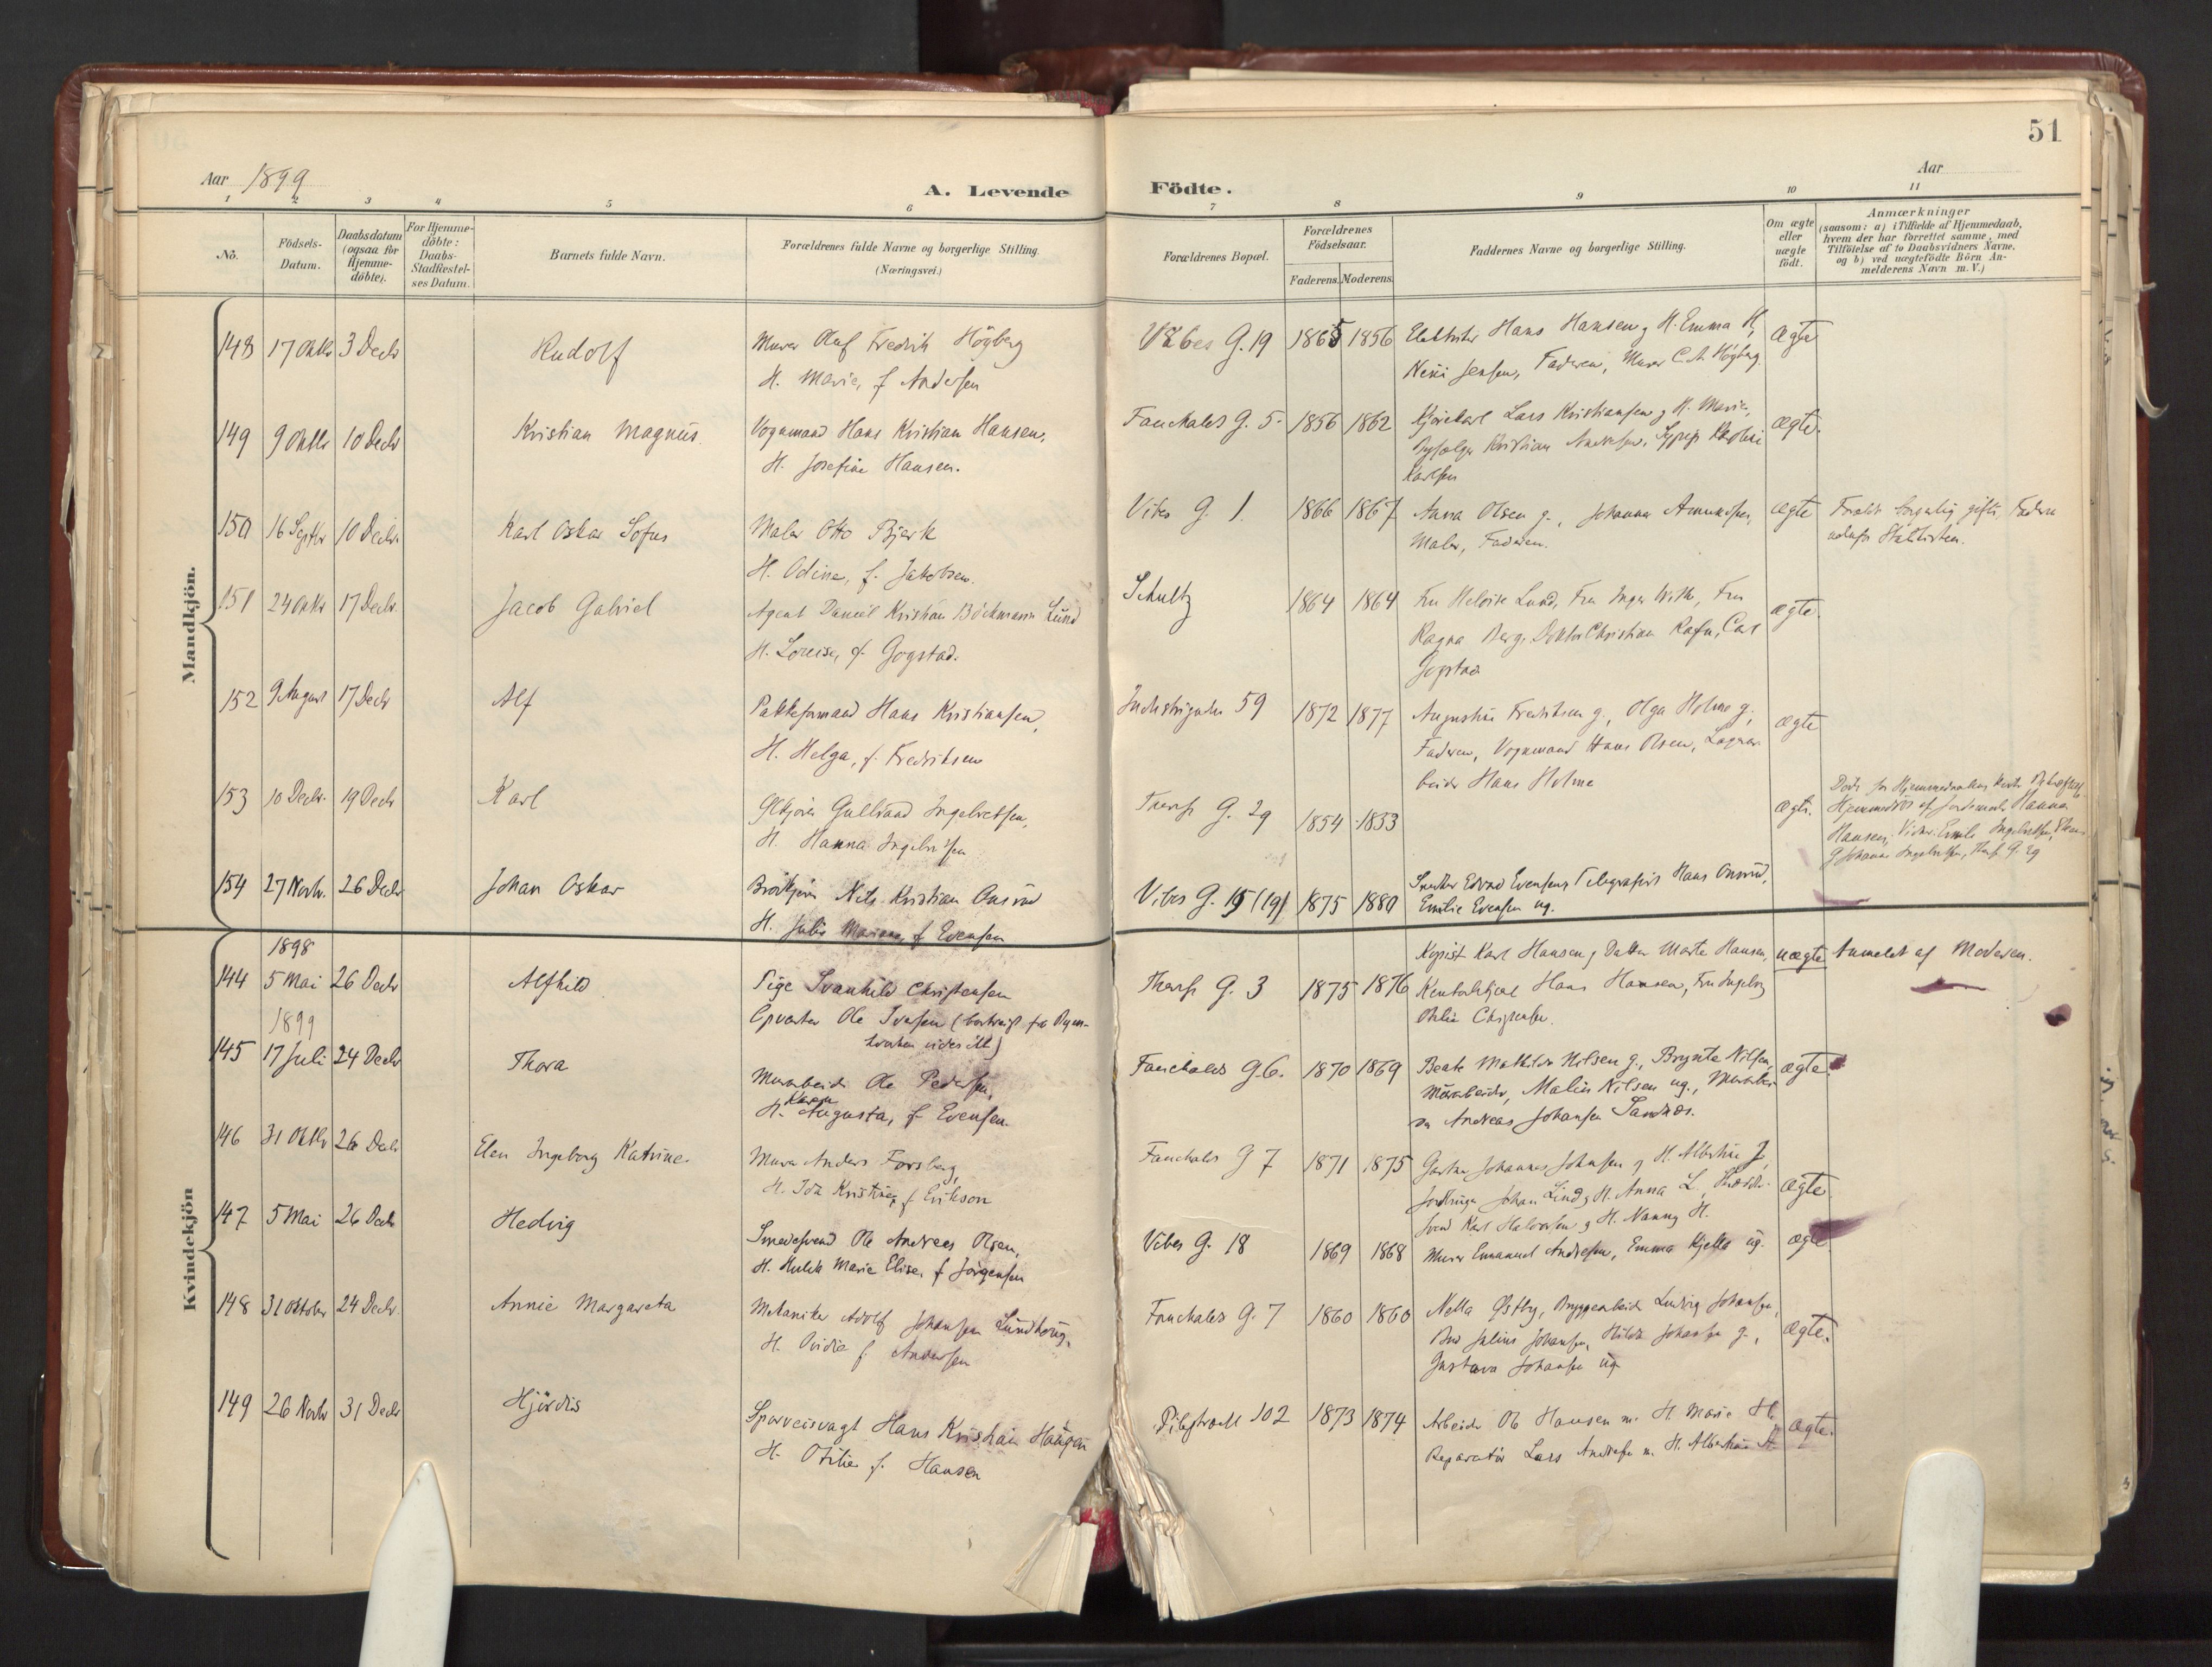 51
Aar 1899
A. Levende Födte.
Aar
1 2 3 4 5 6 7 8 9 10 11
No.
Födsels-Datum.
Daabsdatum (ogsaa för Hjemme-döbte).
For Hjemme-döbte: Daabs-Stadfæstel-ses Datum.
Barnets fulde Navn.
Forældrenes fulde Navne og borgerlige Stilling.
(Næringsvei.)
Forældrenes Bopæl.
Forældrenes Födselsaar.
Faderens. Moderens.
Faddernes Navne og borgerlige Stilling.
Om ægte eller uægte födt.
Anmærkninger
(saasom: a) i Tilfælde af Hjemmedaab,
hvem der har forrettet samme, med
Tilföielse af to Daabsvidners Navne,
og b) ved uægtefödte Börn An-
melderens Navn m. V.)
Mandkjön.
148 17 Oktbr 3 Decbr Rudolf Murer Oluf Fredrik Högberg
H. Marie, f Andersen
Vibes G. 19 1865 1856 Hans Hansen g H. Emma H,
Jensen, Faderen, Murer C. A. Högberg
Ægte
149 9 Oktbr 10 Decbr Kristian Magnus. Vognmand Hans Kristian Hansen,
H. Josefine Hansen.
Fauchalds G. 5. 1856 1862 Kjörekarl Lars Kristiansen g H. Marie,
Kristian Andersen,
Karlsen
ægte.
150 16 Septbr 10 Decbr. Karl Oskar Sofus Maler Otto Bjerk
H. Odine, f. Jakobsen.
Vibes G. 1. 1866 1867 Anna Olsen g., Johanna Amundsen,
Maler, Faderen.
ægte Foræld. borgerlig gifte, Faderen
udaf Statskirken.
151 24 Oktbr 17 Decbr. Jacob Gabriel Agent Daniel Kristian Böckmann Lund
H. Lovise, f. Gogstad.
Schultz 1864 1864 Fru Heloise Lund, Fru Inga With, Fru
Ragna Berg, Doktor Christian Rafn, Carl
Gogstad
ægte.
152 9 August 17 Decbr Alf Pakkeformand Hans Kristiansen,
H. Helga, f. Fredriksen
Industrigaden 59 1872 1877 Augustine Fredriksen g., Olga Holme g.,
Faderen, Vognmand Hans Olsen, Lagerar-
beider Hans Holme
ægte
153 10 Decbr. 19 Decbr Karl Gullbrand Ingebretsen,
H. Hanna Ingebretsen
Thereses G. 29 1854 1853
ægte. Död før Hjemmedaaben kunde
Hjemmedöbt af Jordemoder Hanna
Hansen, Vidner: Emilie Ingebretsen,
g Johanne Ingebretsen, Ths. G. 29
154 27 Novbr. 26 Decbr Johan Oskar Brödkjører Nils Kristian Onsrud
H. Julie Mariane, f Evensen
Vibes G. 15 (19) 1875 1880 Snedker Edvard Evensen, Telegrafist Hans Onsrud,
Emilie Evensen ug.
Kvindekjön
1898
144 5 Mai 26 Decbr Alfhild Pige Svanhild Christensen
Opvarter Ole Iversen (bortreist
vides ikke)
Thereses G. 3 1875 1876 Kopist Karl Hansen g Datter Marte Hansen,
Kontorbetjent Hans Hansen, Fru Ingeborg
Othilie Christensen.
uægte Anmeldt af Moderen.
1899
145 17 Juli 24 Decbr Thora Murarbeider Ole Pedersen,
H. Karen Augusta, f Evensen.
Fauchalds G. 6. 1870 1869 Beate Mathilde Nilsen g., Brynte Nilsen,
Murarbeider, Malin Nilsen ug., Murarbei-
der Andreas Johansen Sandnes.
ægte.
146 31 Oktbr 26 Decbr Elen Ingeborg Katrine. Murer Anders Forsberg,
H. Ida Kristine, f Erikson
Fauchalds G 7 1871 1875 Gartner Johannes Johnsen g H. Albertine J,
Johan Lind g H. Anna L.,
svend Karl Halvorsen g H. Nanny H.
ægte
147 5 Mai 26 Decbr Hedvig Smedesvend Ole Andreas Olsen,
H. Hulda Marie Elise, f Jörgensen
Vibes G. 18 1869 1868 Murer Emanuel Andresen, Emma Kjello ug.
ægte.
148 31 Oktober 24 Decbr. Annie Margareta Mekaniker Adolf Johansen Lundhoug,
H. Ovidia f Andersen
Fauchalds G. 7 1860 1860 Nella Østby, Bryggearbeider Ludvig Johansen,
Bud Julius Johansen, Hilda Johansen g.,
Gustava Johansen ug
ægte.
149 26 Novbr 31 Decbr Hjördis Sporveisvagt Hans Kristian Haugen
H. Otilie f. Hansen
Pilestrædet 102 1873 1874 Arbeider Ole Hansen m. H. Marie H.,
Reparatör Lars Andresen m. H. Albertine A
ægte.